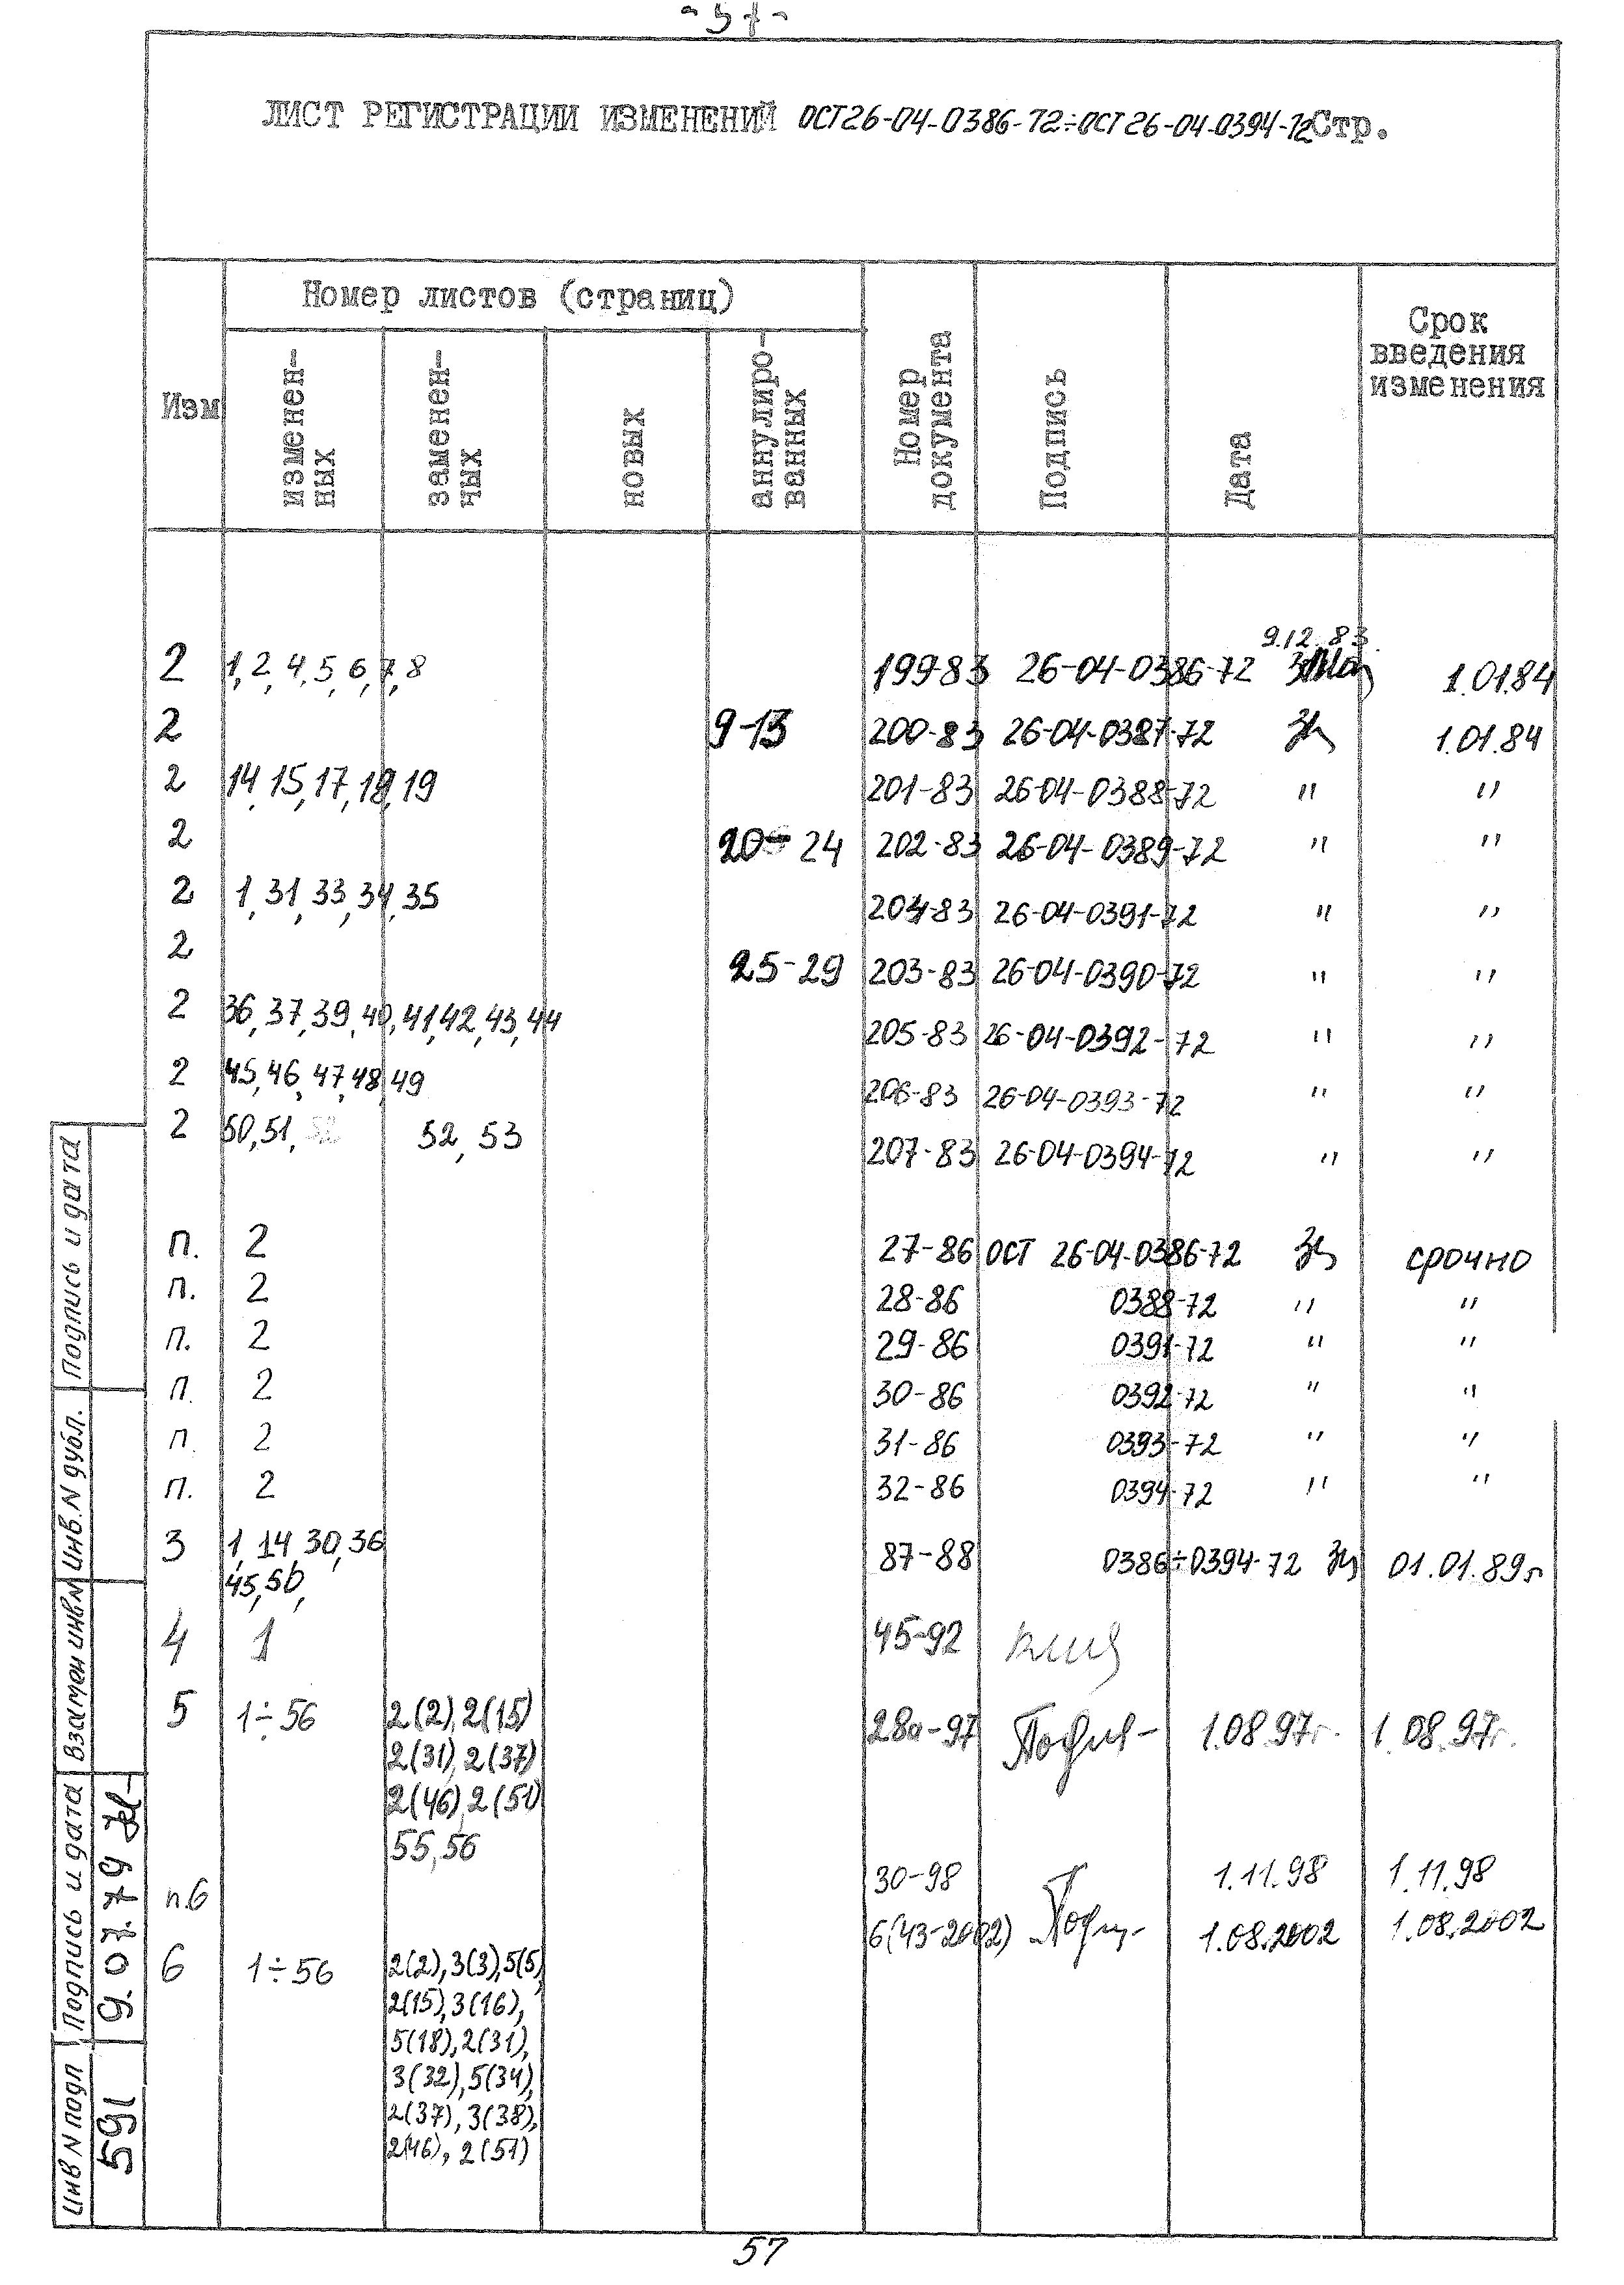 - 57 -
ЛИСТ РЕГИСТРАЦИИ ИЗМЕНЕНИЙ ОСТ26-04-0386-72÷ОСТ26-04-0394-72 Стр.
Изм
Номер листов (страниц)
изменен-
ных
заменен-
ных
новых
аннулиро-
ванных
Номер
документа
Подпись
Дата
Срок
введения
изменения
9.12.83.
2 1,2,4,5,6,7,8 199-83 26-04-0386-72 1.01.84
2 9-13 200-83 26-04-0387-72 1.01.84
2 14,15,17,18,19 201-83 26-04-0388-72 " "
2 20-24 202-83 26-04-0389-72 " "
2 1,31,33,34,35 204-83 26-04-0391-72 " "
2 25-29 203-83 26-04-0390-72 " "
2 36,37,39,40,41,42,43,44 205-83 26-04-0392-72 " "
2 45,46,47,48,49 206-83 26-04-0393-72 " "
2 50,51, 52, 53 207-83 26-04-0394-72 " "
п. 2 27-86 ОСТ 26-04-0386-72 срочно
п. 2 28-86 0388-72 " "
п. 2 29-86 0391-72 " "
п. 2 30-86 0392-72 " "
п. 2 31-86 0393-72 " "
п. 2 32-86 0394-72 " "
3 1,14 30,36 87-88 0386÷0394-72 01.01.89г
45,50,
4 1 45-92
5 1÷56 2(2),2(15) 28а-97 1.08.97г. 1.08.97г.
2(31),2(37)
2(46),2(51)
55,56
п.6 30-98 1.11.98 1.11.98
6(43-2002) 1.08.2002 1.08.2002
6 1÷56 2(2),3(3),5(5),
2(15),3(16),
5(18),2(31),
3(32),5(34),
2(37),3(38),
2(46),2(51)
Подпись и дата
Инв. N дубл.
Взамен инв N
Подпись и дата
9.07.79
Инв N подл
591
57